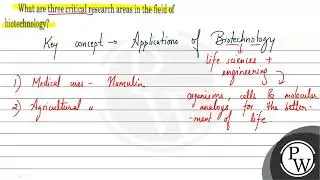 What are three critical research areas in the field of
biotechnology?
Key concept → Applications of Biotechnology
life sciences +
engineering
1) Medical uses - Humulin
organisms, cells & molecular
2) Agricultural "
analogs for the better-
-ment of life.
PW